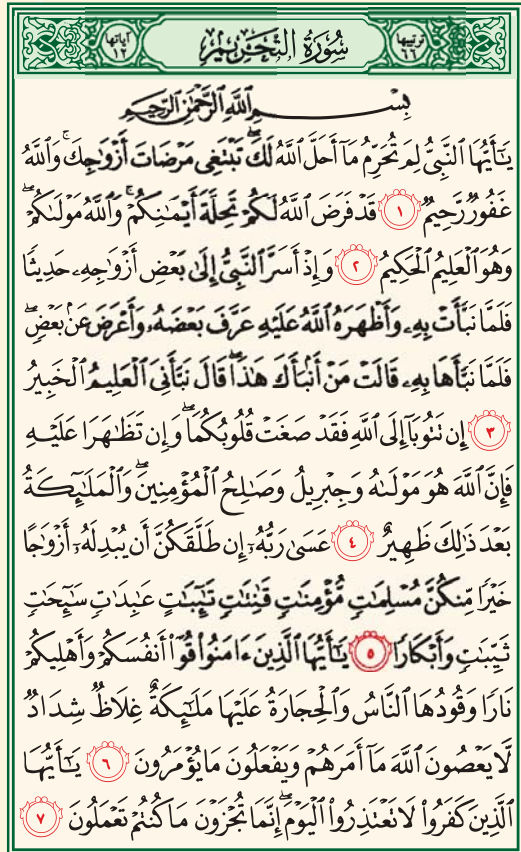 ترتيبها ٦٦ سُورَةُ التَّحْرِيمِ آياتها ١٢
بِسْمِ اللَّهِ الرَّحْمَٰنِ الرَّحِيمِ
يَٰٓأَيُّهَا ٱلنَّبِىُّ لِمَ تُحَرِّمُ مَآ أَحَلَّ ٱللَّهُ لَكَۖ تَبْتَغِى مَرْضَاتَ أَزْوَٰجِكَۚ وَٱللَّهُ
غَفُورٌ رَّحِيمٌ ١ قَدْ فَرَضَ ٱللَّهُ لَكُمْ تَحِلَّةَ أَيْمَٰنِكُمْۚ وَٱللَّهُ مَوْلَىٰكُمْۖ
وَهُوَ ٱلْعَلِيمُ ٱلْحَكِيمُ ٢ وَإِذْ أَسَرَّ ٱلنَّبِىُّ إِلَىٰ بَعْضِ أَزْوَٰجِهِۦ حَدِيثًا
فَلَمَّا نَبَّأَتْ بِهِۦ وَأَظْهَرَهُ ٱللَّهُ عَلَيْهِ عَرَّفَ بَعْضَهُۥ وَأَعْرَضَ عَنۢ بَعْضٍۖ
فَلَمَّا نَبَّأَهَا بِهِۦ قَالَتْ مَنْ أَنۢبَأَكَ هَٰذَاۖ قَالَ نَبَّأَنِىَ ٱلْعَلِيمُ ٱلْخَبِيرُ
٣ إِن تَتُوبَآ إِلَى ٱللَّهِ فَقَدْ صَغَتْ قُلُوبُكُمَاۖ وَإِن تَظَٰهَرَا عَلَيْهِ
فَإِنَّ ٱللَّهَ هُوَ مَوْلَىٰهُ وَجِبْرِيلُ وَصَٰلِحُ ٱلْمُؤْمِنِينَۖ وَٱلْمَلَٰٓئِكَةُ
بَعْدَ ذَٰلِكَ ظَهِيرٌ ٤ عَسَىٰ رَبُّهُۥٓ إِن طَلَّقَكُنَّ أَن يُبْدِلَهُۥٓ أَزْوَٰجًا
خَيْرًا مِّنكُنَّ مُسْلِمَٰتٍ مُّؤْمِنَٰتٍ قَٰنِتَٰتٍ تَٰٓئِبَٰتٍ عَٰبِدَٰتٍ سَٰٓئِحَٰتٍ
ثَيِّبَٰتٍ وَأَبْكَارًا ٥ يَٰٓأَيُّهَا ٱلَّذِينَ ءَامَنُوا۟ قُوٓا۟ أَنفُسَكُمْ وَأَهْلِيكُمْ
نَارًا وَقُودُهَا ٱلنَّاسُ وَٱلْحِجَارَةُ عَلَيْهَا مَلَٰٓئِكَةٌ غِلَاظٌ شِدَادٌ
لَّا يَعْصُونَ ٱللَّهَ مَآ أَمَرَهُمْ وَيَفْعَلُونَ مَا يُؤْمَرُونَ ٦ يَٰٓأَيُّهَا
ٱلَّذِينَ كَفَرُوا۟ لَا تَعْتَذِرُوا۟ ٱلْيَوْمَۖ إِنَّمَا تُجْزَوْنَ مَا كُنتُمْ تَعْمَلُونَ ٧